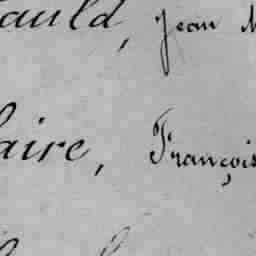 auld, Jean M
aire, François